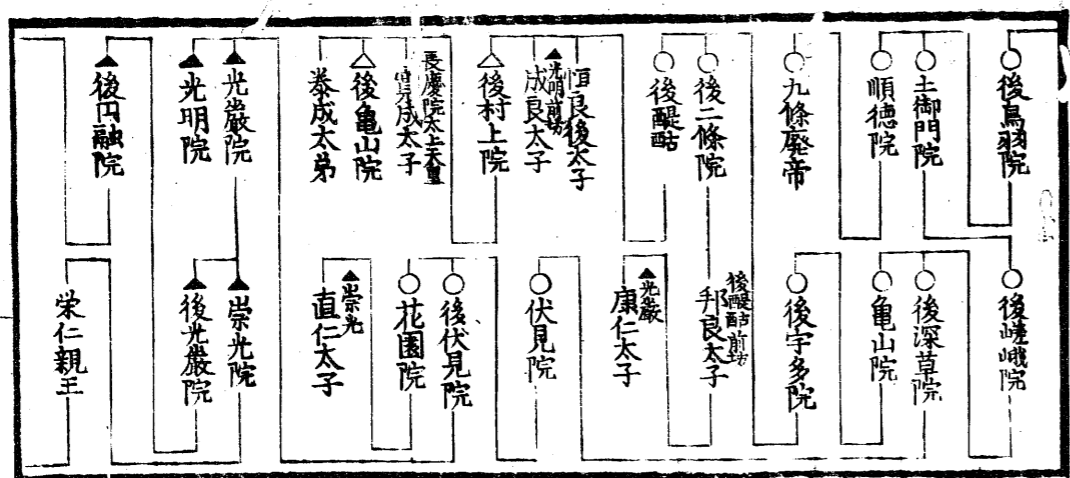 後鳥羽院
土御門院
順徳院
九條廃帝
後二條院
後醍醐
恒良後太子
光明前坊
成良太子
後村上院
長慶院太上天皇
寛成太子
後亀山院
泰成太弟
光嚴院
光明院
後円融院
後嵯峨院
後深草院
亀山院
後宇多院
後醍醐前坊
邦良太子
光嚴
康仁太子
伏見院
後伏見院
花園院
崇光
直仁太子
崇光院
後光嚴院
栄仁親王